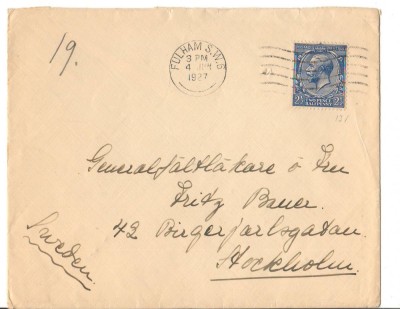 19.
FULHAM S.W.6
3 PM
4 JUN
1927
2½ 2½
Generalfältläkare ö Fru
Fritz Bauer.
42 Birgerjarlsgatan.
Stockholm.
Sweden.